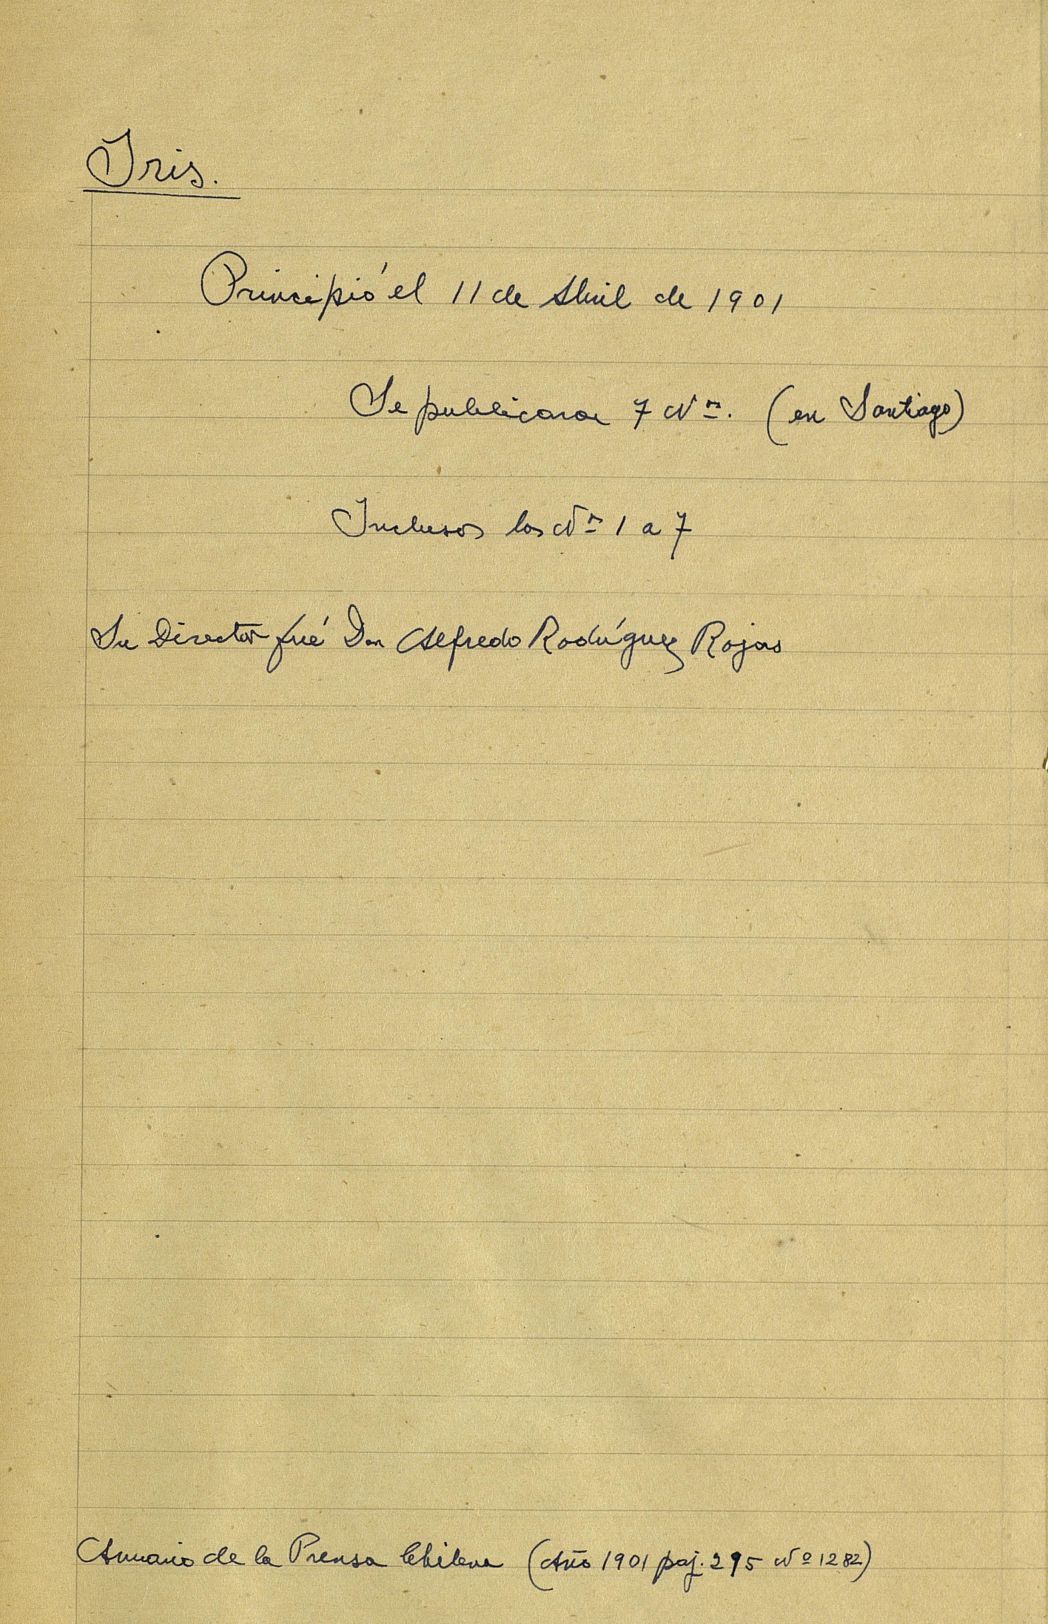 Iris.
Principió el 11 de Abril de 1901
Se publicaron 7 Nos. (en Santiago)
Inclusos los Nos 1 a 7
Su Director fué Don Alfredo Rodríguez Rojas
Anuario de la Prensa Chilena (Año 1901 paj. 295 Nº 1282)